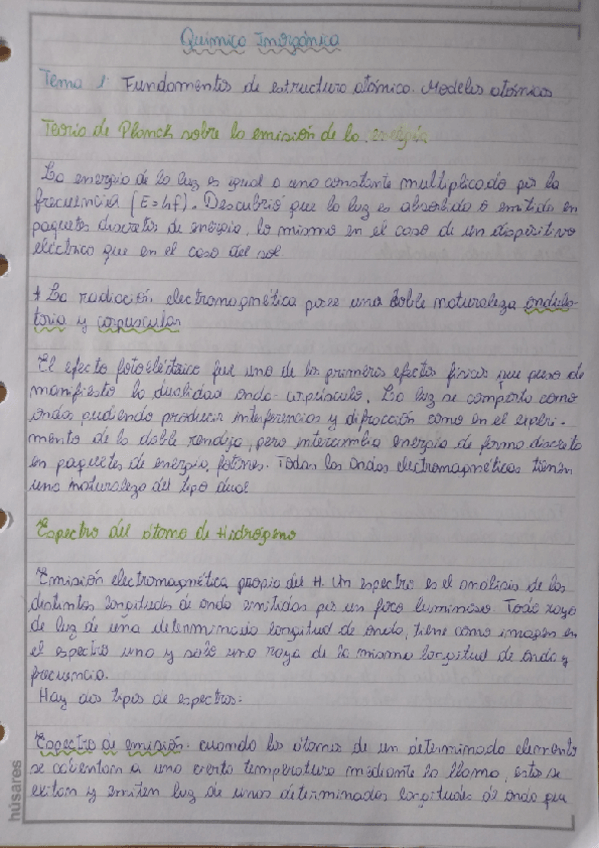 Química Inorgánica
Tema 1: Fundamentos de estructura atómica. Modelos atómicos
Teoría de Planck sobre la emisión de la energía
La energía de la luz es igual a una constante multiplicada por la
frecuencia (E=hf). Descubrió que la luz es absorbida o emitida en
paquetes discretos de energía, lo mismo en el caso de un dispositivo
eléctrico que en el caso del sol.
* La radiación electromagnética posee una doble naturaleza ondula-
toria y corpuscular
El efecto fotoeléctrico fue uno de los primeros efectos físicos que puso de
manifiesto la dualidad onda-corpúsculo. La luz se comporta como
ondas pudiendo producir interferencias y difracción como en el experi-
mento de la doble rendija, pero intercambia energía de forma discreta
en paquetes de energía, fotones. Todas las ondas electromagnéticas tienen
una naturaleza del tipo dual
Espectro del átomo de Hidrógeno
Emisión electromagnética propia del H. Un espectro es el análisis de las
distintas longitudes de onda emitidas por un foco luminoso. Todo rayo
de luz de una determinada longitud de onda, tiene como imagen en
el espectro una y solo una raya de la misma longitud de onda y
frecuencia.
Hay dos tipos de espectros:
Espectro de emisión: cuando los átomos de un determinado elemento
se calientan a una cierta temperatura mediante la llama, estos se
exitan y emiten luz de unas determinadas longitudes de onda que
húsares